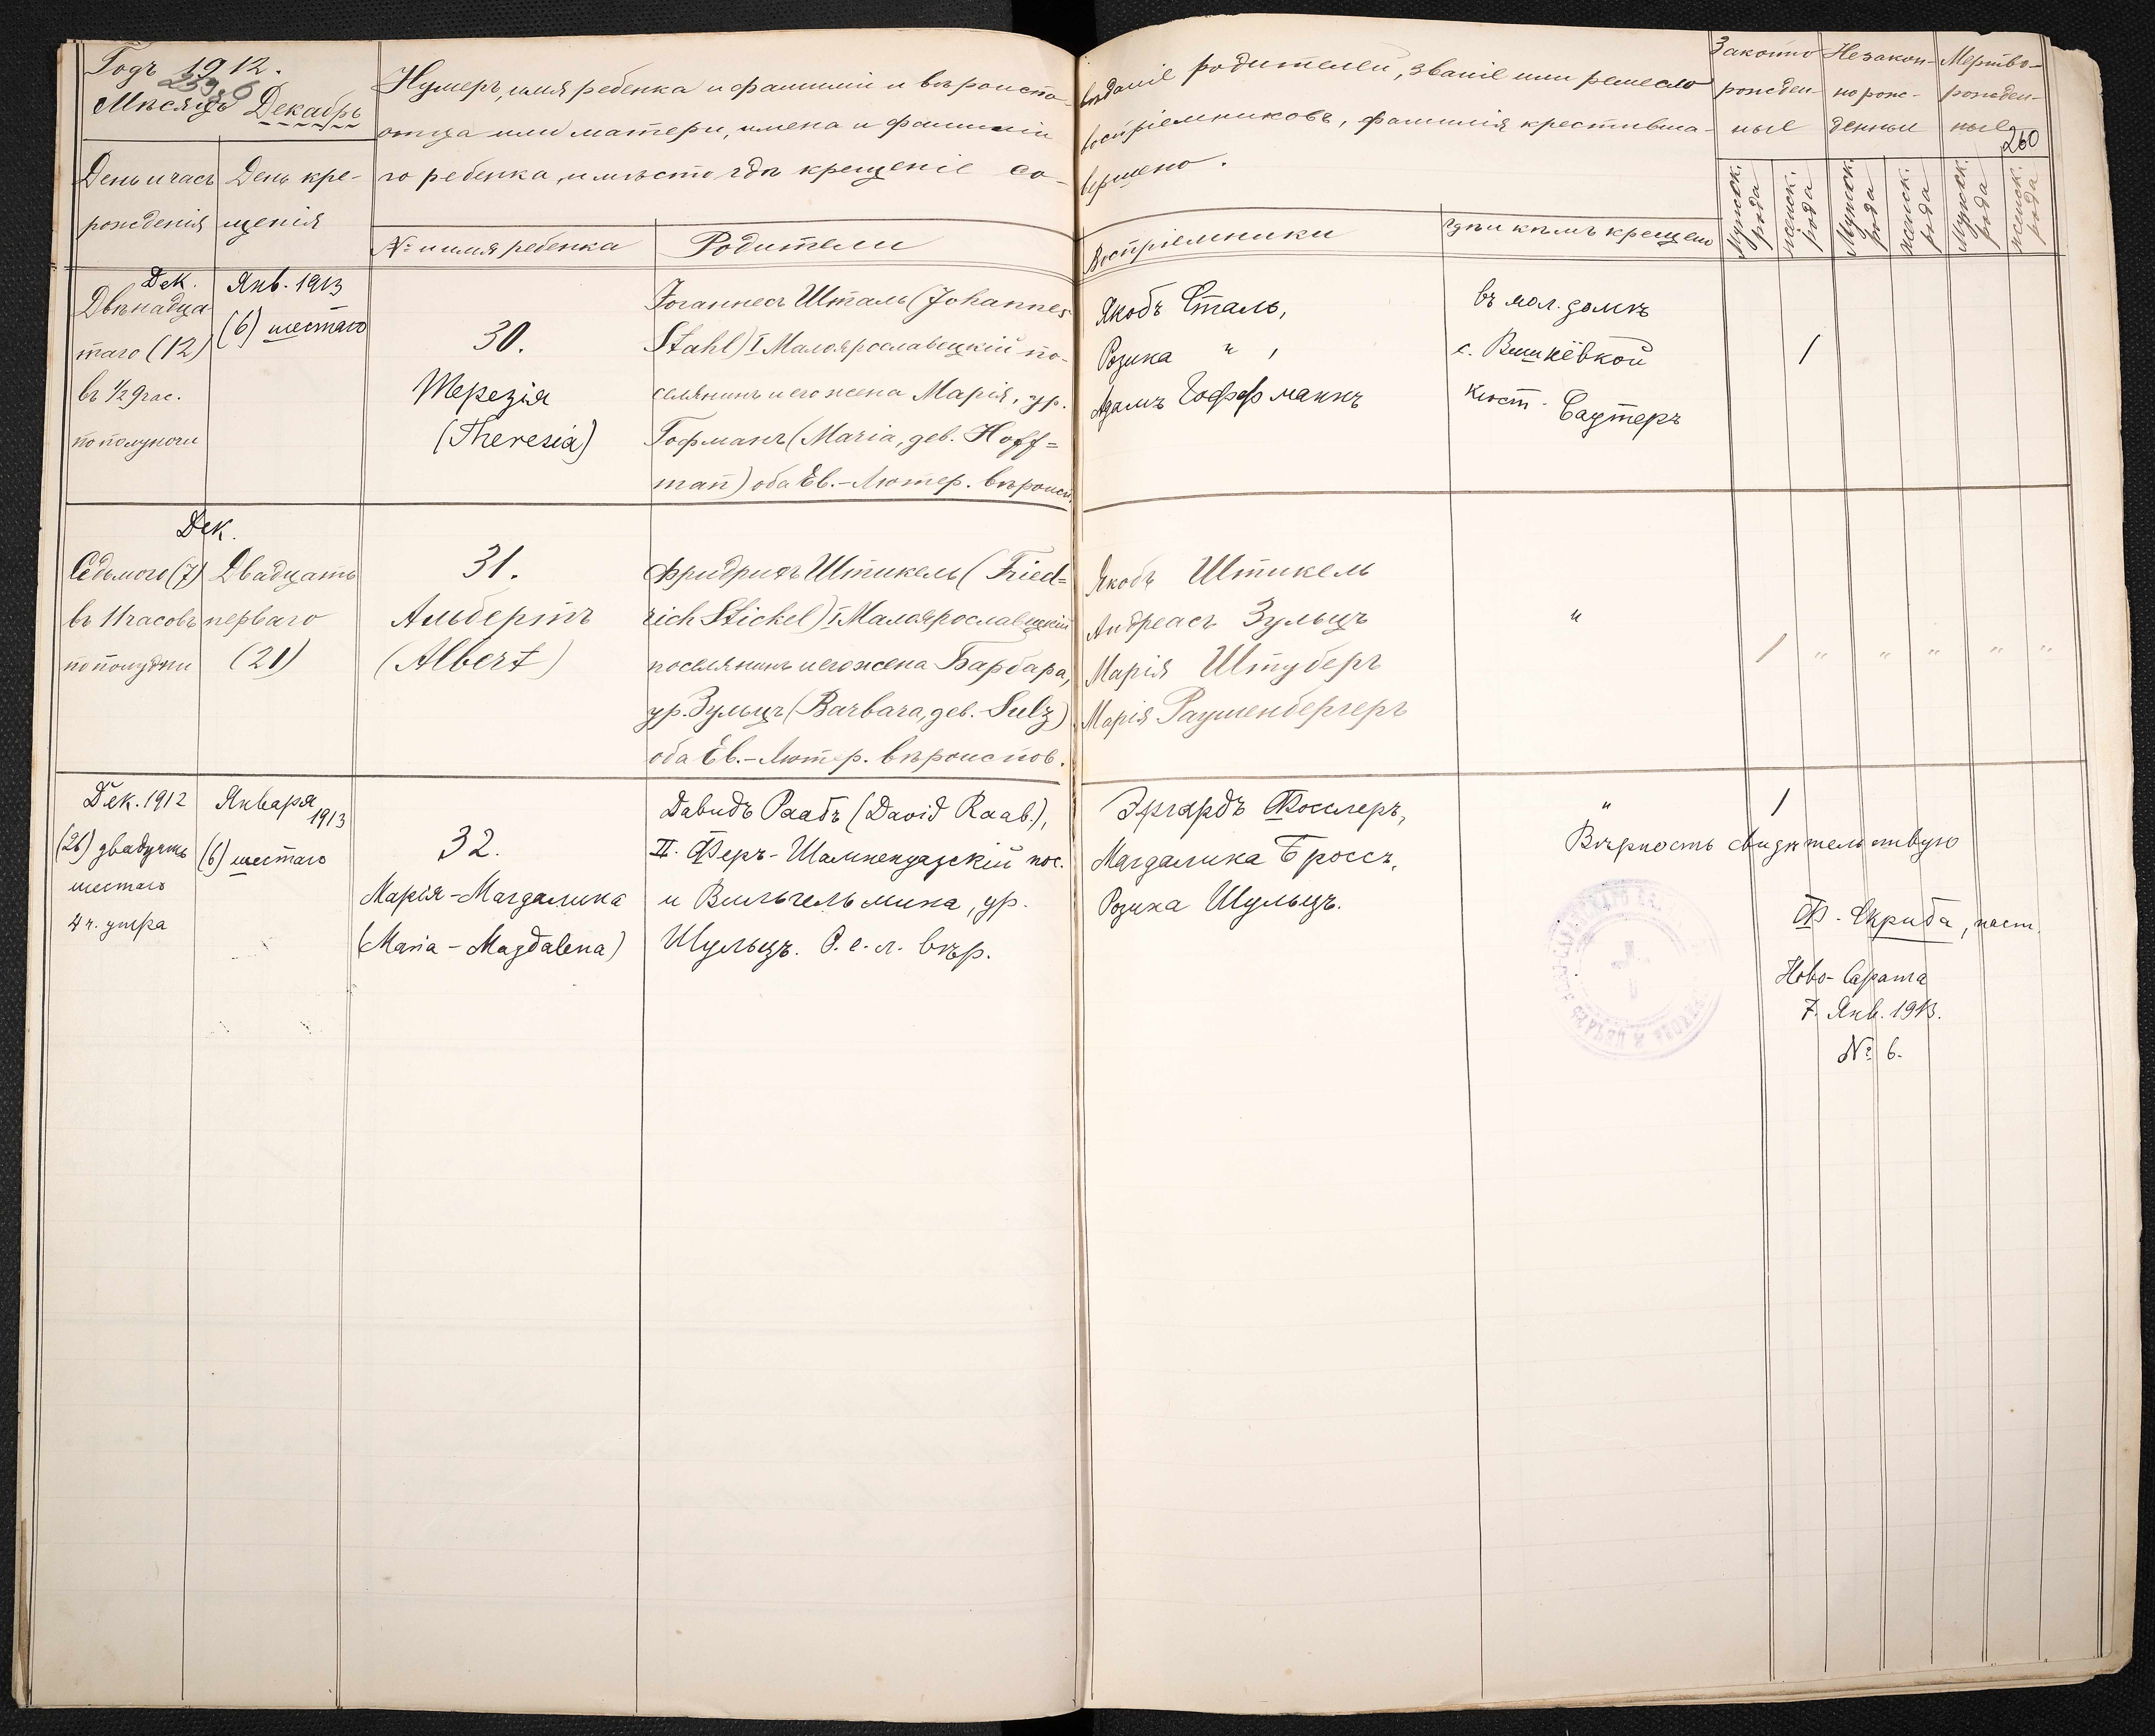 Годъ 1912.
Мѣсяцъ Декабрь
Нумеръ, имя ребенка и фамилии и вѣроиспо-
вѣданіе родителей, званіе или ремесло
отца или матери, имена и фамиліи
воспріемниковъ, фамилія крестивша-
го ребенка, и мѣсто гдѣ крещеніе со-
вершено.
Законно рожден-ные
Незакон-норож-денные
Мертво-рожден-ные
260
День и часъ рожденія
День кре-щенія
№ и имя ребенка
Родители
Воспріемники
гдѣ и кѣмъ крещено
Мужск. рода
женск. рода
Мужск. рода
женск. рода
Мужск. рода
женск. рода
Дек.
Двѣнадца
таго (12)
въ ½ 9 час.
пополуночи
Янв. 1913
(6) шестаго
30.
Терезія
(Theresia)
Іоганнесъ Шталь (Johannes
Stahl) I Малоярославецкій по-
селянинъ и его жена Марія, ур.
Гофманъ (Maria, geb. Hoff=
man̄) оба Ев.-Лютер. вѣроисп.
Якобъ Сталь,
Розина " ,
Адамъ Гоффманнъ
въ мол. домѣ
с. Вишнёвкой
кюст. Саутеръ
/
Дек.
Седьмого (7)
въ 11 часовъ
пополудни
Двадцать
перваго
(21)
31.
Альбертъ
(Albert)
Фридрихъ Штикель (Fried=
rich Stickel) I Малоярославецкій
поселянинъ и его жена Барбара,
ур. Зульцъ (Barbara, geb. Sulz)
оба Ев.-Лютер. вѣроиспов.
Якобъ Штикель
Андреасъ Зульцъ
Марія Штуберъ
Марія Раушенбергеръ
"
/ " " " " "
Дек. 1912
(26) двадцать
шестаго
4 ч. утра
Января
1913
(6) шестаго
32.
Марія-Магдалина
(Maria-Magdalena)
Давидъ Раабъ (David Raab.),
II. Феръ-Шампенуазскій пос.
и Вильгельмина, ур.
Шульцъ. О. е. л. вѣр.
Эргардъ Фосслеръ,
Магдалина Броссъ,
Розина Шульцъ.
"
/
Вѣрность свидѣтельствую
Ф. Скриба, паст.
Ново-Сарата
7. Янв. 1913.
№ 6.